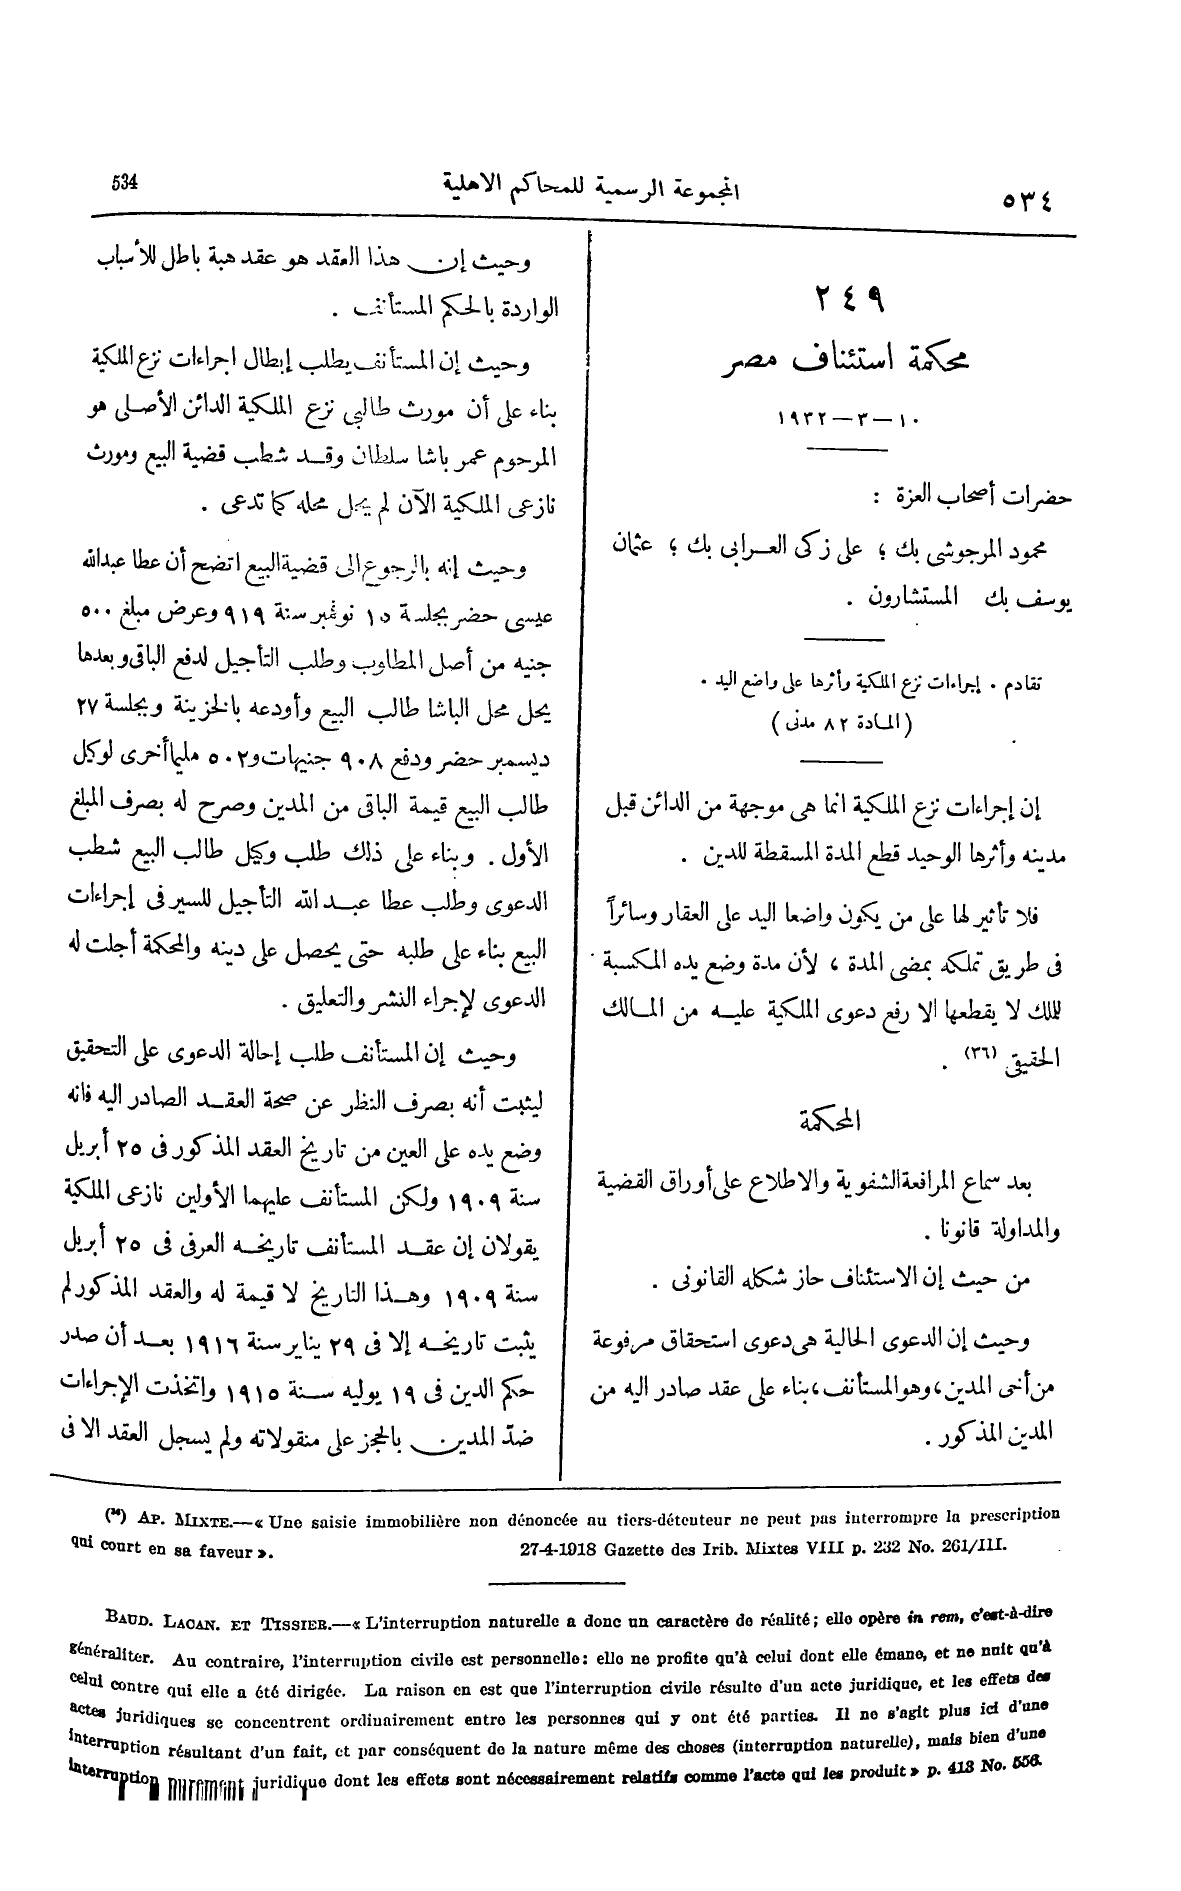 534
المجموعة الرسمية للمحاكم الاهلية
٥٣٤
٢٤٩
محكمة استئناف مصر
١٠ - ٣ - ١٩٣٢
حضرات أصحاب العزة :
محمود المرجوشى بك ؛ على زكى العرابى بك ؛ عثمان
يوسف بك المستشارون .
تقادم . إجراءات نزع الملكية وأثرها على واضع اليد .
(المادة ٨٢ مدنى)
إن إجراءات نزع الملكية انما هى موجهة من الدائن قبل
مدينه وأثرها الوحيد قطع المدة المسقطة للدين .
فلا تأثير لها على من يكون واضعا اليد على العقار وسائراً
فى طريق تملكه بمضى المدة ، لأن مدة وضع يده المكسبة
للملك لا يقطعها الا رفع دعوى الملكية عليه من المالك
الحقيقى (٣٦) .
المحكمة
بعد سماع المرافعة الشفوية والاطلاع على أوراق القضية
والمداولة قانونا .
من حيث إن الاستئناف حاز شكله القانونى .
وحيث إن الدعوى الحالية هى دعوى استحقاق مرفوعة
من أخى المدين ، وهو المستأنف ، بناء على عقد صادر اليه من
المدين المذكور .
وحيث إن هذا العقد هو عقد هبة باطل للأسباب
الواردة بالحكم المستأنف .
وحيث إن المستأنف يطلب إبطال اجراءات نزع الملكية
بناء على أن مورث طالبى نزع الملكية الدائن الأصلى هو
المرحوم عمر باشا سلطان وقد شطب قضية البيع ومورث
نازعى الملكية الآن لم يحل محله كما تدعى .
وحيث إنه بالرجوع الى قضية البيع اتضح أن عطا عبدالله
عيسى حضر بجلسة ١٥ نوفمبر سنة ٩١٩ وعرض مبلغ ٥٠٠
جنيه من أصل المطلوب وطلب التأجيل لدفع الباقى وبعدها
يحل محل الباشا طالب البيع وأودعه بالخزينة وبجلسة ٢٧
ديسمبر حضر ودفع ٩٠٨ جنيهات و٥٠٢ مليما أخرى لوكيل
طالب البيع قيمة الباقى من المدين وصرح له بصرف المبلغ
الأول . وبناء على ذلك طلب وكيل طالب البيع شطب
الدعوى وطلب عطا عبد الله التأجيل للسير فى إجراءات
البيع بناء على طلبه حتى يحصل على دينه والمحكمة أجلت له
الدعوى لإجراء النشر والتعليق .
وحيث إن المستأنف طلب إحالة الدعوى على التحقيق
ليثبت أنه بصرف النظر عن صحة العقد الصادر اليه فانه
وضع يده على العين من تاريخ العقد المذكور فى ٢٥ أبريل
سنة ١٩٠٩ ولكن المستأنف عليهما الأولين نازعى الملكية
يقولان إن عقد المستأنف تاريخه العرفى فى ٢٥ أبريل
سنة ١٩٠٩ وهذا التاريخ لا قيمة له والعقد المذكور لم
يثبت تاريخه إلا فى ٢٩ يناير سنة ١٩١٦ بعد أن صدر
حكم الدين فى ١٩ يوليه سنة ١٩١٥ واتخذت الإجراءات
ضدّ المدين بالحجز على منقولاته ولم يسجل العقد الا فى
(³⁶) AP. MIXTE.—« Une saisie immobilière non dénoncée au tiers-détenteur ne peut pas interrompre la prescription
qui court en sa faveur ». 27-4-1918 Gazette des Irib. Mixtes VIII p. 232 No. 261/III.
BAUD. LACAN. ET TISSIER.—« L'interruption naturelle a donc un caractère de réalité; elle opère in rem, c'est-à-dire
généraliter. Au contraire, l'interruption civile est personnelle: elle ne profite qu'à celui dont elle émane, et ne nuit qu'à
celui contre qui elle a été dirigée. La raison en est que l'interruption civile résulte d'un acte juridique, et les effets des
actes juridiques se concentrent ordinairement entre les personnes qui y ont été parties. Il ne s'agit plus ici d'une
interruption résultant d'un fait, et par conséquent de la nature même des choses (interruption naturelle), mais bien d'une
interruption purement juridique dont les effets sont nécessairement relatifs comme l'acte qui les produit » p. 413 No. 556.